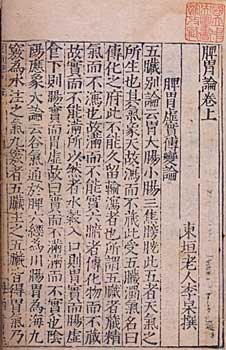 脾胃論卷上
東垣老人李杲撰
脾胃虛實傳變論
五臟別論云胃大腸小腸三焦膀胱此五者天氣之
所生也其氣象天故瀉而不藏此受五臟濁氣名曰
傳化之府此不能久留輸瀉者也所謂五臟者藏精
氣而不瀉也故滿而不能實六腑者傳化物而不藏
故實而不能滿所以然者水穀入口則胃實而腸虛
食下則腸實而胃虛故曰實而不滿滿而不實也陰
陽應象大論云谷氣通於脾六經為川腸胃為海九
竅為水注之氣九竅者五臟主之五臟皆得胃氣乃